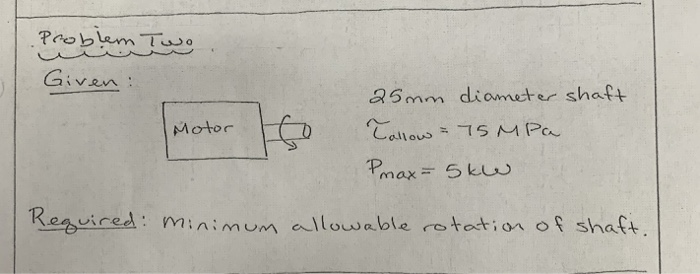 Problem Two
Given:
25mm diameter shaft
Motor
τallow = 75 MPa
Pmax = 5kW
Required: minimum allowable rotation of shaft.